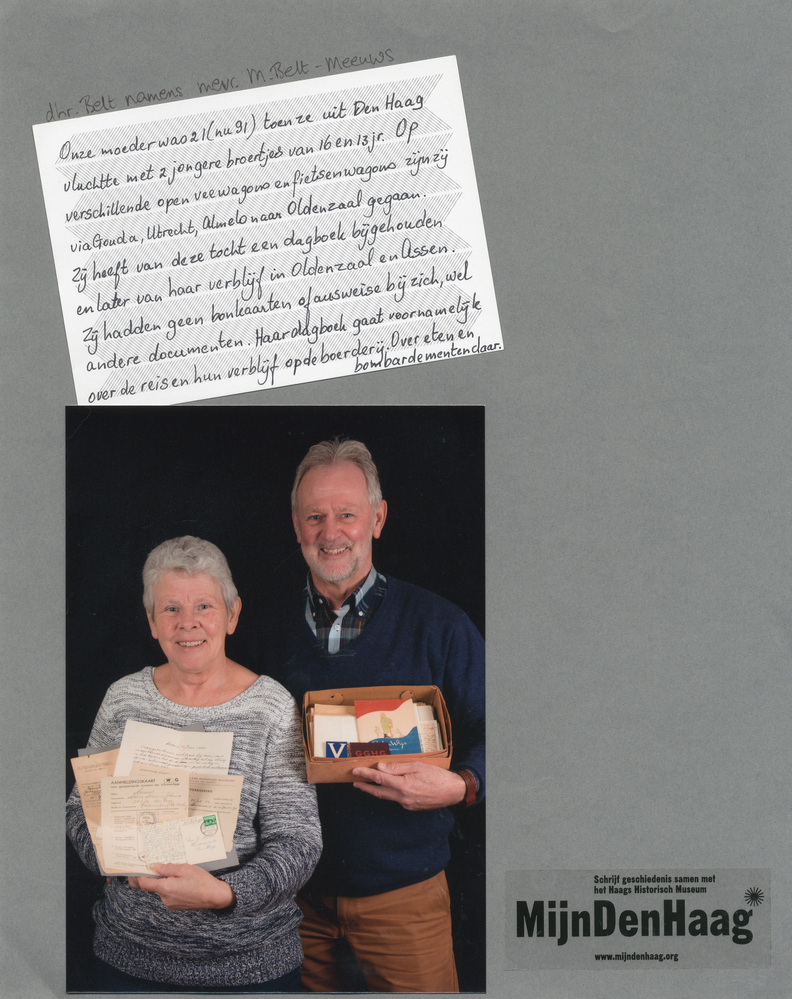 dhr. Belt namens mevr. M. Belt - Meeuws
Onze moeder was 21 (nu 91) toen ze uit Den Haag
vluchtte met 2 jongere broertjes van 16 en 13 jr. Op
verschillende open veewagons en fietsenwagons zijn zij
via Gouda, Utrecht, Almelo naar Oldenzaal gegaan.
Zij heeft van deze tocht een dagboek bijgehouden
en later van haar verblijf in Oldenzaal en Assen.
Zij hadden geen bonkaarten of ausweise bij zich, wel
andere documenten. Haar dagboek gaat voornamelijk
over de reis en hun verblijf op de boerderij. Over eten en
bombardementen daar.
AANMELDINGSKAART
V
GGHG
Schrijf geschiedenis samen met
het Haags Historisch Museum
MijnDenHaag
www.mijndenhaag.org